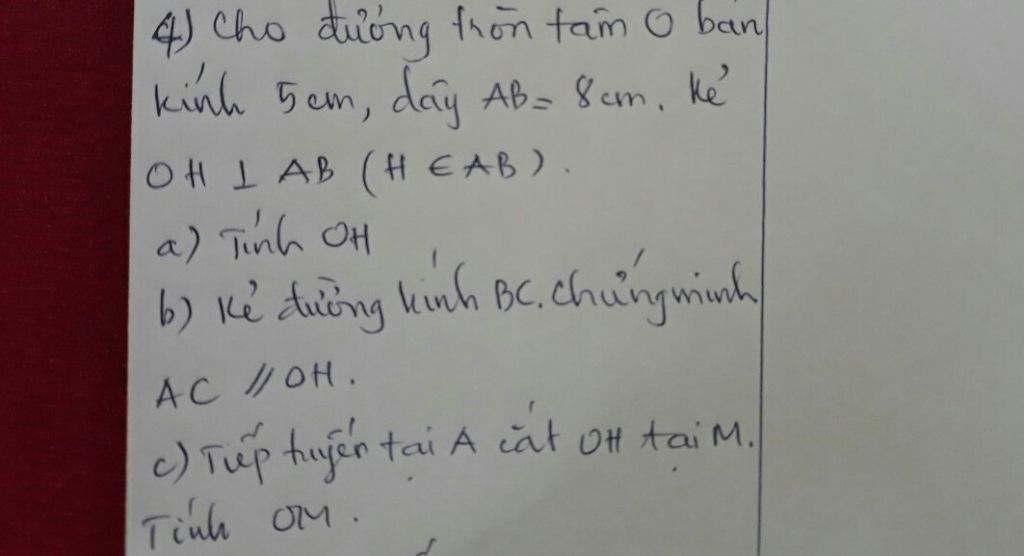 4) Cho đường tròn tâm O bán
kính 5cm, dây AB = 8cm. Kẻ
OH ⊥ AB (H ∈ AB).
a) Tính OH
b) Kẻ đường kính BC. Chứng minh
AC // OH.
c) Tiếp tuyến tại A cắt OH tại M.
Tính OM.